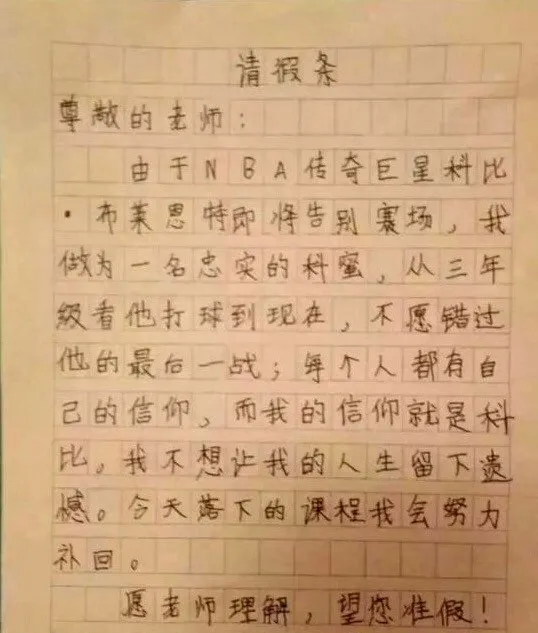 请假条
尊敬的老师：
由于NBA传奇巨星科比
·布莱恩特即将告别赛场，我
做为一名忠实的科蜜，从三年
级看他打球到现在，不愿错过
他的最后一战；每个人都有自
己的信仰，而我的信仰就是科
比。我不想让我的人生留下遗
憾。今天落下的课程我会努力
补回。
愿老师理解，望您准假！